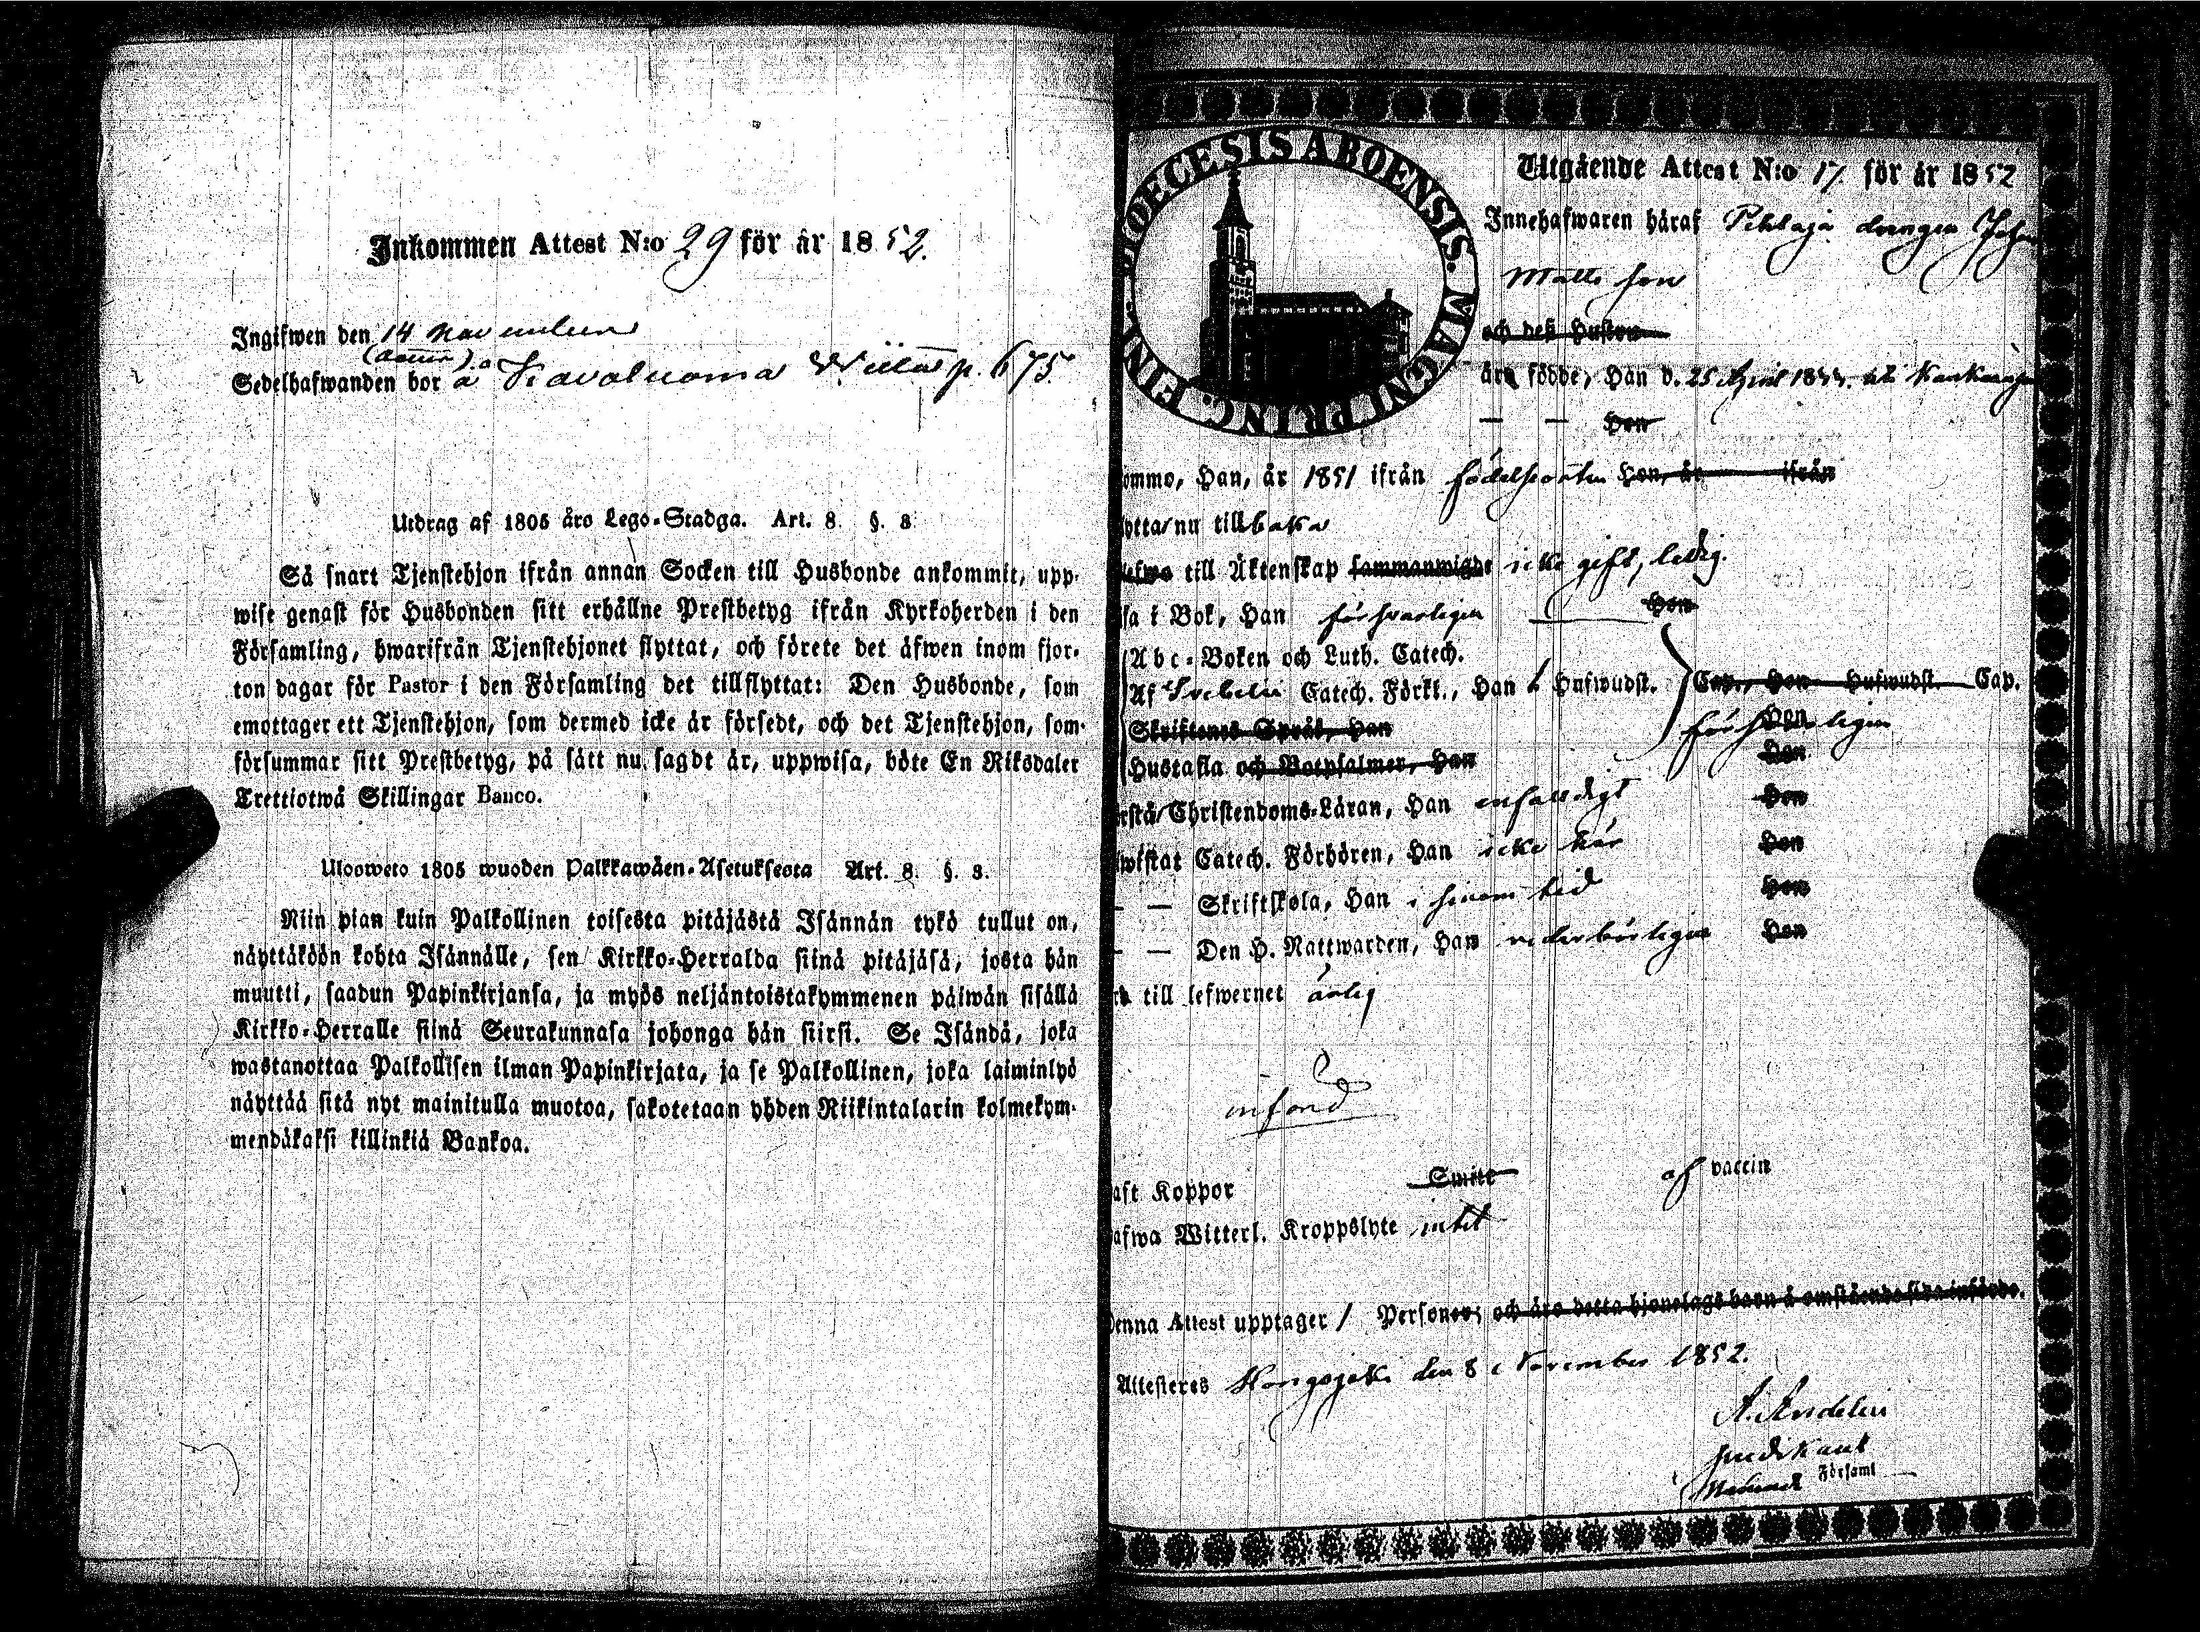 Inkommen Attest N:o 29 för år 1852.
Ingifwen den 14 november
Sedelhafwanden bor å p. 675.
Utdrag af 1805 års Lego-Stadga. Art. 8. §. 8.
Så snart Tjenstehjon ifrån annan Socken till Husbonde ankommit, upp-
wise genast för Husbonden sitt erhållne Prestbetyg ifrån Kyrkoherden i den
Församling, hwarifrån Tjenstehjonet flyttat, och förete det äfwen inom fjor-
ton dagar för Pastor i den Församling det tillflyttat: Den Husbonde, som
emottager ett Tjenstehjon, som dermed icke är försedt, och det Tjenstehjon, som
försummar sitt Prestbetyg, på sätt nu sagdt är, uppwisa, böte En Riksdaler
Trettiotwå Skillingar Banco.
Uloosweto 1805 wuoden Palkkawäen-Asetuksesta Art. 8. §. 8.
Niin pian kuin Palkollinen toisesta pitäjästä Isännän tykö tullut on,
näyttäköön kohta Isännälle, sen Kirkko-Herralda siinä pitäjäsä, josta hän
muutti, saadun Papinkirjansa, ja myös neljäntoistakymmenen päiwän sisällä
Kirkko-Herralle siinä Seurakunnasa johonga hän siirsi. Se Isändä, joka
wastanottaa Palkollisen ilman Papinkirjata, ja se Palkollinen, joka laiminlyö
näyttää sitä nyt mainitulla muotoa, sakotetaan yhden Riikintalarin kolmekym-
mendäkaksi killinkiä Bankoa.
DIOECESIS ABOENSIS. MAGNI PRINC. FINL.
Utgående Attest N:o 17. för år 1852
Innehafwaren häraf drengen Johan
Matts son
och deß Hustru
äro födde, Han d. 25 April
— — Hon
ommo, Han, år 1851 ifrån födelseorten Hon, år ifrån
ytta nu tillbaka
lefwa till Äktenskap sammanwigde icke gift, ledig.
sa i Bok, Han försvarligen Hon
Abc-Boken och Luth. Catech.
Af Svebelii Catech. Förkl., Han 6 Hufwudst. Cap., Hon Hufwudst. Cap.
Skriftenes Språk, Han Hon försvarligen
Hustafla och Botpsalmer, Han Hon
rstå Christendoms-Läran, Han enfaldigt Hon
wistat Catech. Förhören, Han icke här Hon
— — Skriftskola, Han i sinom tid Hon
— — Den H. Nattwarden, Han vederbörligen Hon
till lefwernet ärlig
införd
aft Koppor Smitt af vaccin
afwa Witterl. Kroppslyte intet
Denna Attest upptager 1 Personer, och äro detta hjonelags barn å omstående sida införde.
Attesteras Kongsjoki den 8 November 1852.
A. Andelin
predikant
Församl